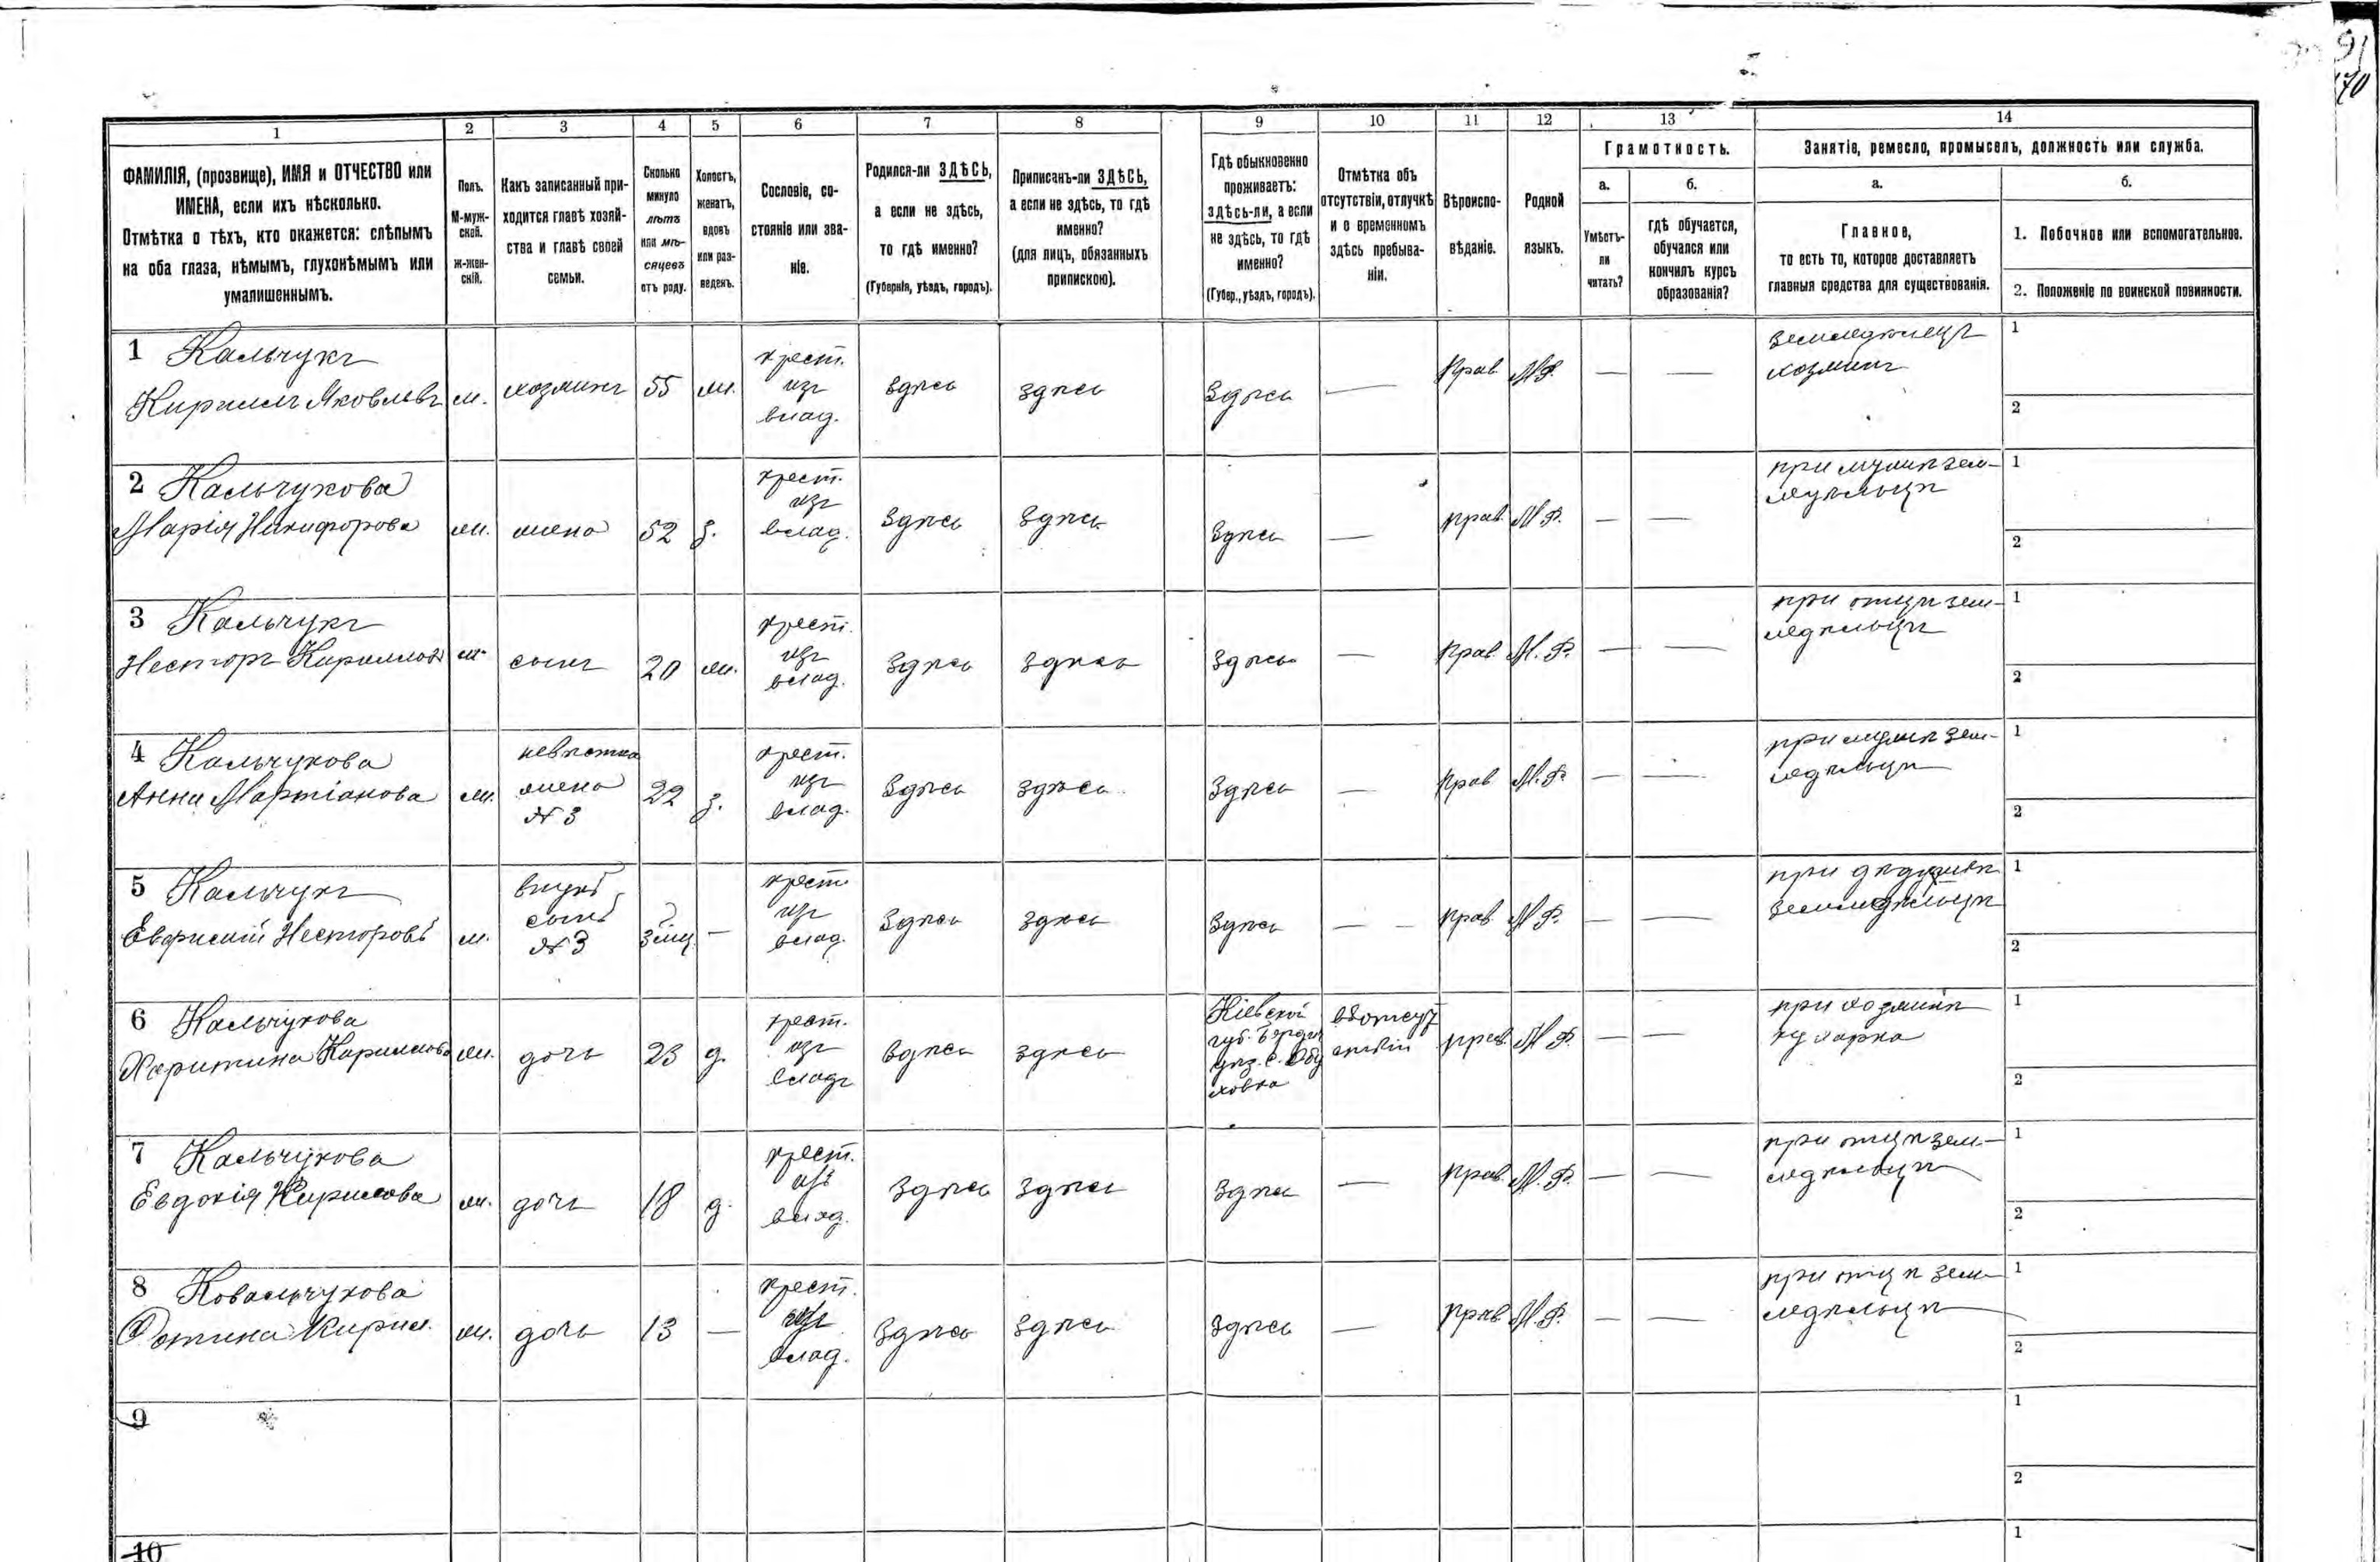 91
170
1
2
3
4
5
6
7
8
9
10
11
12
13
14
ФАМИЛІЯ, (прозвище), ИМЯ и ОТЧЕСТВО или
ИМЕНА, если ихъ нѣсколько.
Отмѣтка о тѣхъ, кто окажется: слѣпымъ
на оба глаза, нѣмымъ, глухонѣмымъ или
умалишеннымъ.
Полъ.
М-муж-
ской.
ж-жен-
скій.
Какъ записанный при-
ходится главѣ хозяй-
ства и главѣ своей
семьи.
Сколько
минуло
лѣтъ
или мѣ-
сяцевъ
отъ роду.
Холостъ,
женатъ,
вдовъ
или раз-
веденъ.
Сословіе, со-
стояніе или зва-
ніе.
Родился-ли ЗДѢСЬ,
а если не здѣсь,
то гдѣ именно?
(Губернія, уѣздъ, городъ).
Приписанъ-ли ЗДѢСЬ,
а если не здѣсь, то гдѣ
именно?
(для лицъ, обязанныхъ
припискою).
Гдѣ обыкновенно
проживаетъ:
здѣсь-ли, а если
не здѣсь, то гдѣ
именно?
(Губер., уѣздъ, городъ).
Отмѣтка объ
отсутствіи, отлучкѣ
и о временномъ
здѣсь пребыва-
ніи.
Вѣроиспо-
вѣданіе.
Родной
языкъ.
Грамотность.
а.
Умѣетъ-
ли
читать?
б.
гдѣ обучается,
обучался или
кончилъ курсъ
образованія?
Занятіе, ремесло, промыселъ, должность или служба.
а.
Главное,
то есть то, которое доставляетъ
главныя средства для существованія.
б.
1. Побочное или вспомогательное.
2. Положеніе по воинской повинности.
1 Кальчукъ
Кириллъ Яковлевъ
м.
хозяинъ
55
ж.
крест.
изъ
влад.
здѣсь
здѣсь
Здѣсь
—
Прав
М.Р.
—
—
земледѣлецъ
хозяинъ
1
2
2 Кальчукова
Марія Никифорова
ж.
жена
52
з.
крест.
изъ
влад.
Здѣсь
Здѣсь
Здѣсь
—
прав.
М.Р.
—
—
при мужѣ зем-
ледѣльцѣ
1
2
3 Кальчукъ
Несторъ Кирилловъ
м.
сынъ
20
ж.
крест.
изъ
влад.
Здѣсь
Здѣсь
Здѣсь
—
Прав.
М.Р.
—
—
при отцѣ зем-
ледѣльцѣ
1
2
4 Кальчукова
Анна Мартіанова
ж.
невѣстка
жена
№ 3
22
з.
крест.
изъ
влад.
Здѣсь
здѣсь
Здѣсь
—
Прав
М.Р.
—
—
при мужѣ зем-
ледѣльцѣ
1
2
5 Кальчукъ
Несторовъ
м.
внукъ
сынъ
№ 3
—
крест.
изъ
влад.
Здѣсь
здѣсь
Здѣсь
— —
прав.
М.Р.
—
—
при дѣдушкѣ
земледѣльцѣ
1
2
6 Кальчукова
Харитина Кириллова
ж.
дочь
23
д.
крест.
изъ
влад.
Здѣсь
здѣсь
Кіевской
губ. Бердич
уѣз. с.
въ отсут
ствіи
прав.
М.Р.
—
—
при хозяинѣ
кухарка
1
2
7 Кальчукова
Евдокія Кирилова
ж.
дочь
18
д.
крест.
изъ
влад.
Здѣсь
Здѣсь
Здѣсь
—
прав.
М.Р.
—
—
при отцѣ зем-
ледѣльцѣ
1
2
8 Ковальчукова
Фотина Кирил.
ж.
дочь
13
—
крест.
изъ
влад.
Здѣсь
Здѣсь
Здѣсь
—
Прав.
М.Р.
—
—
при отцѣ зем-
ледѣльцѣ
1
2
9
1
2
10
1